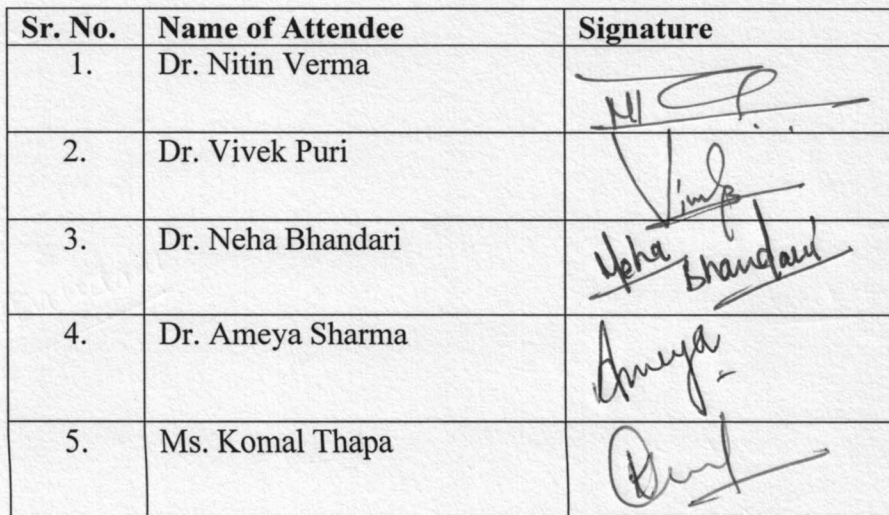 Sr. No. Name of Attendee Signature
1. Dr. Nitin Verma
2. Dr. Vivek Puri
3. Dr. Neha Bhandari Neha Bhandari
4. Dr. Ameya Sharma Ameya
5. Ms. Komal Thapa